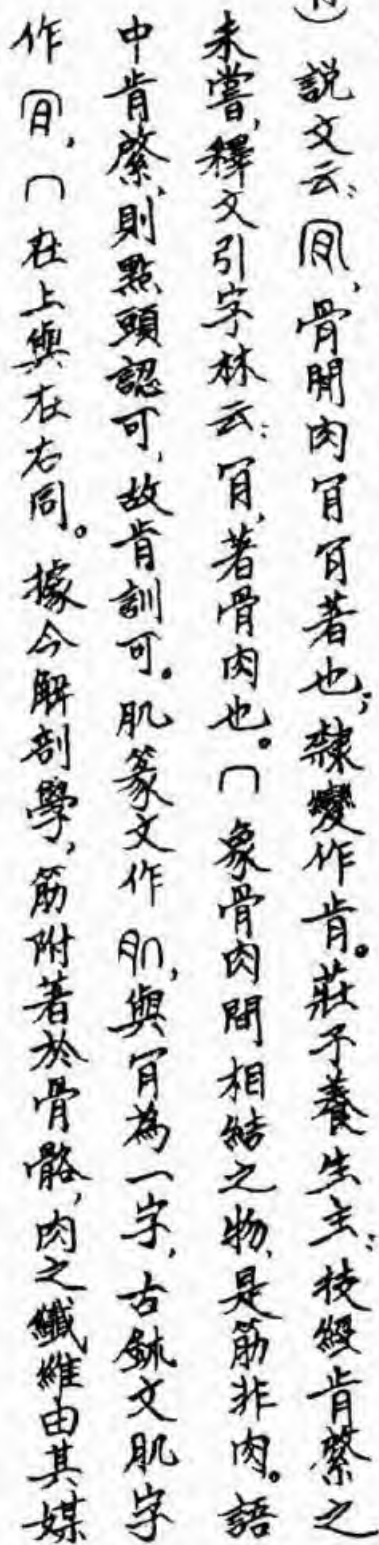 説文云：肎，骨間肉肎肎著也；隸變作肯。莊子養生主：技經肯綮之
未嘗，釋文引字林云：肎，著骨肉也。∩象骨肉間相結之物，是筋非肉。語
中肯綮，則點頭認可，故肯訓可。肌篆文作𦘩，與肎為一字，古鉢文肌字
作肎，∩在上與在右同。據今解剖學，筋附著於骨骼，肉之纖維由其媒